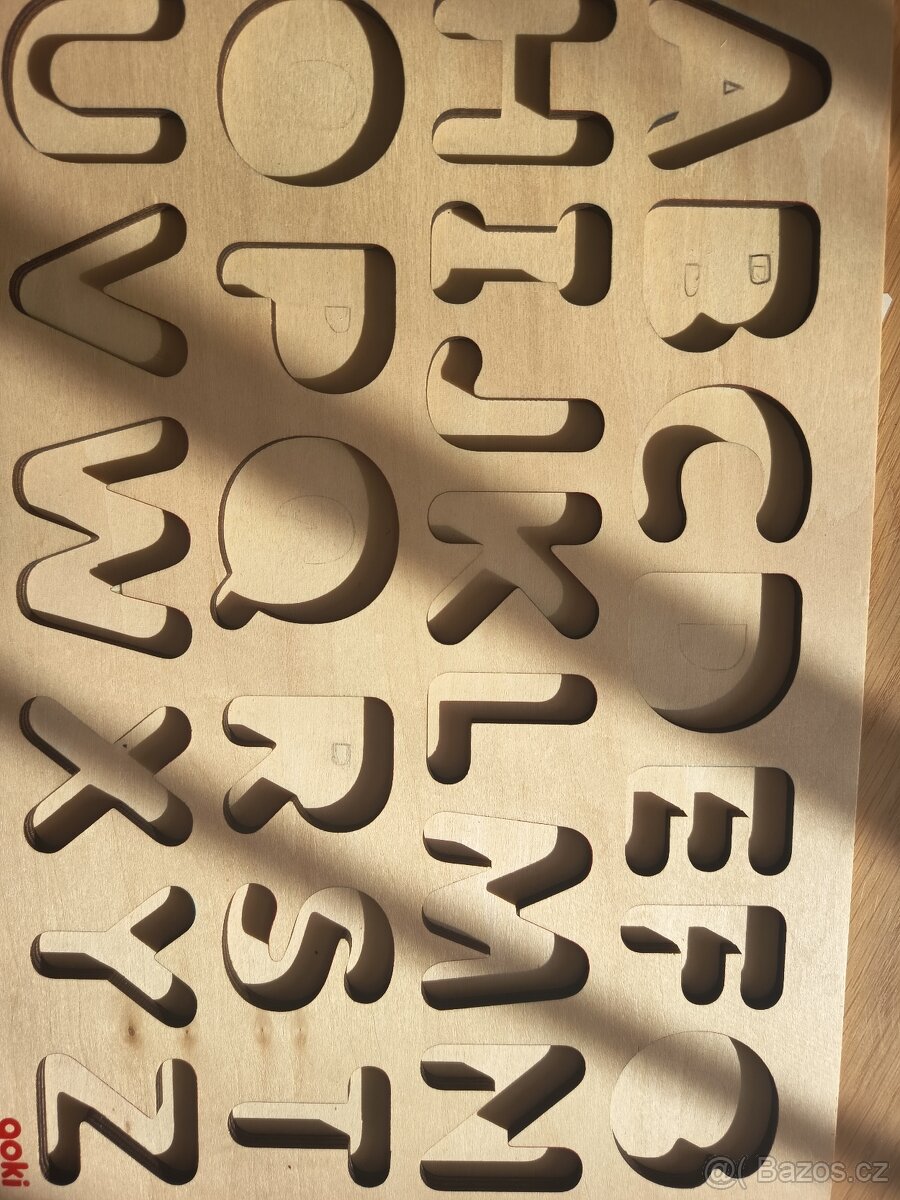 A B C D E F G
H I J K L M N
O P Q R S T
U V W X Y Z
aoki
@( Bazos.cz